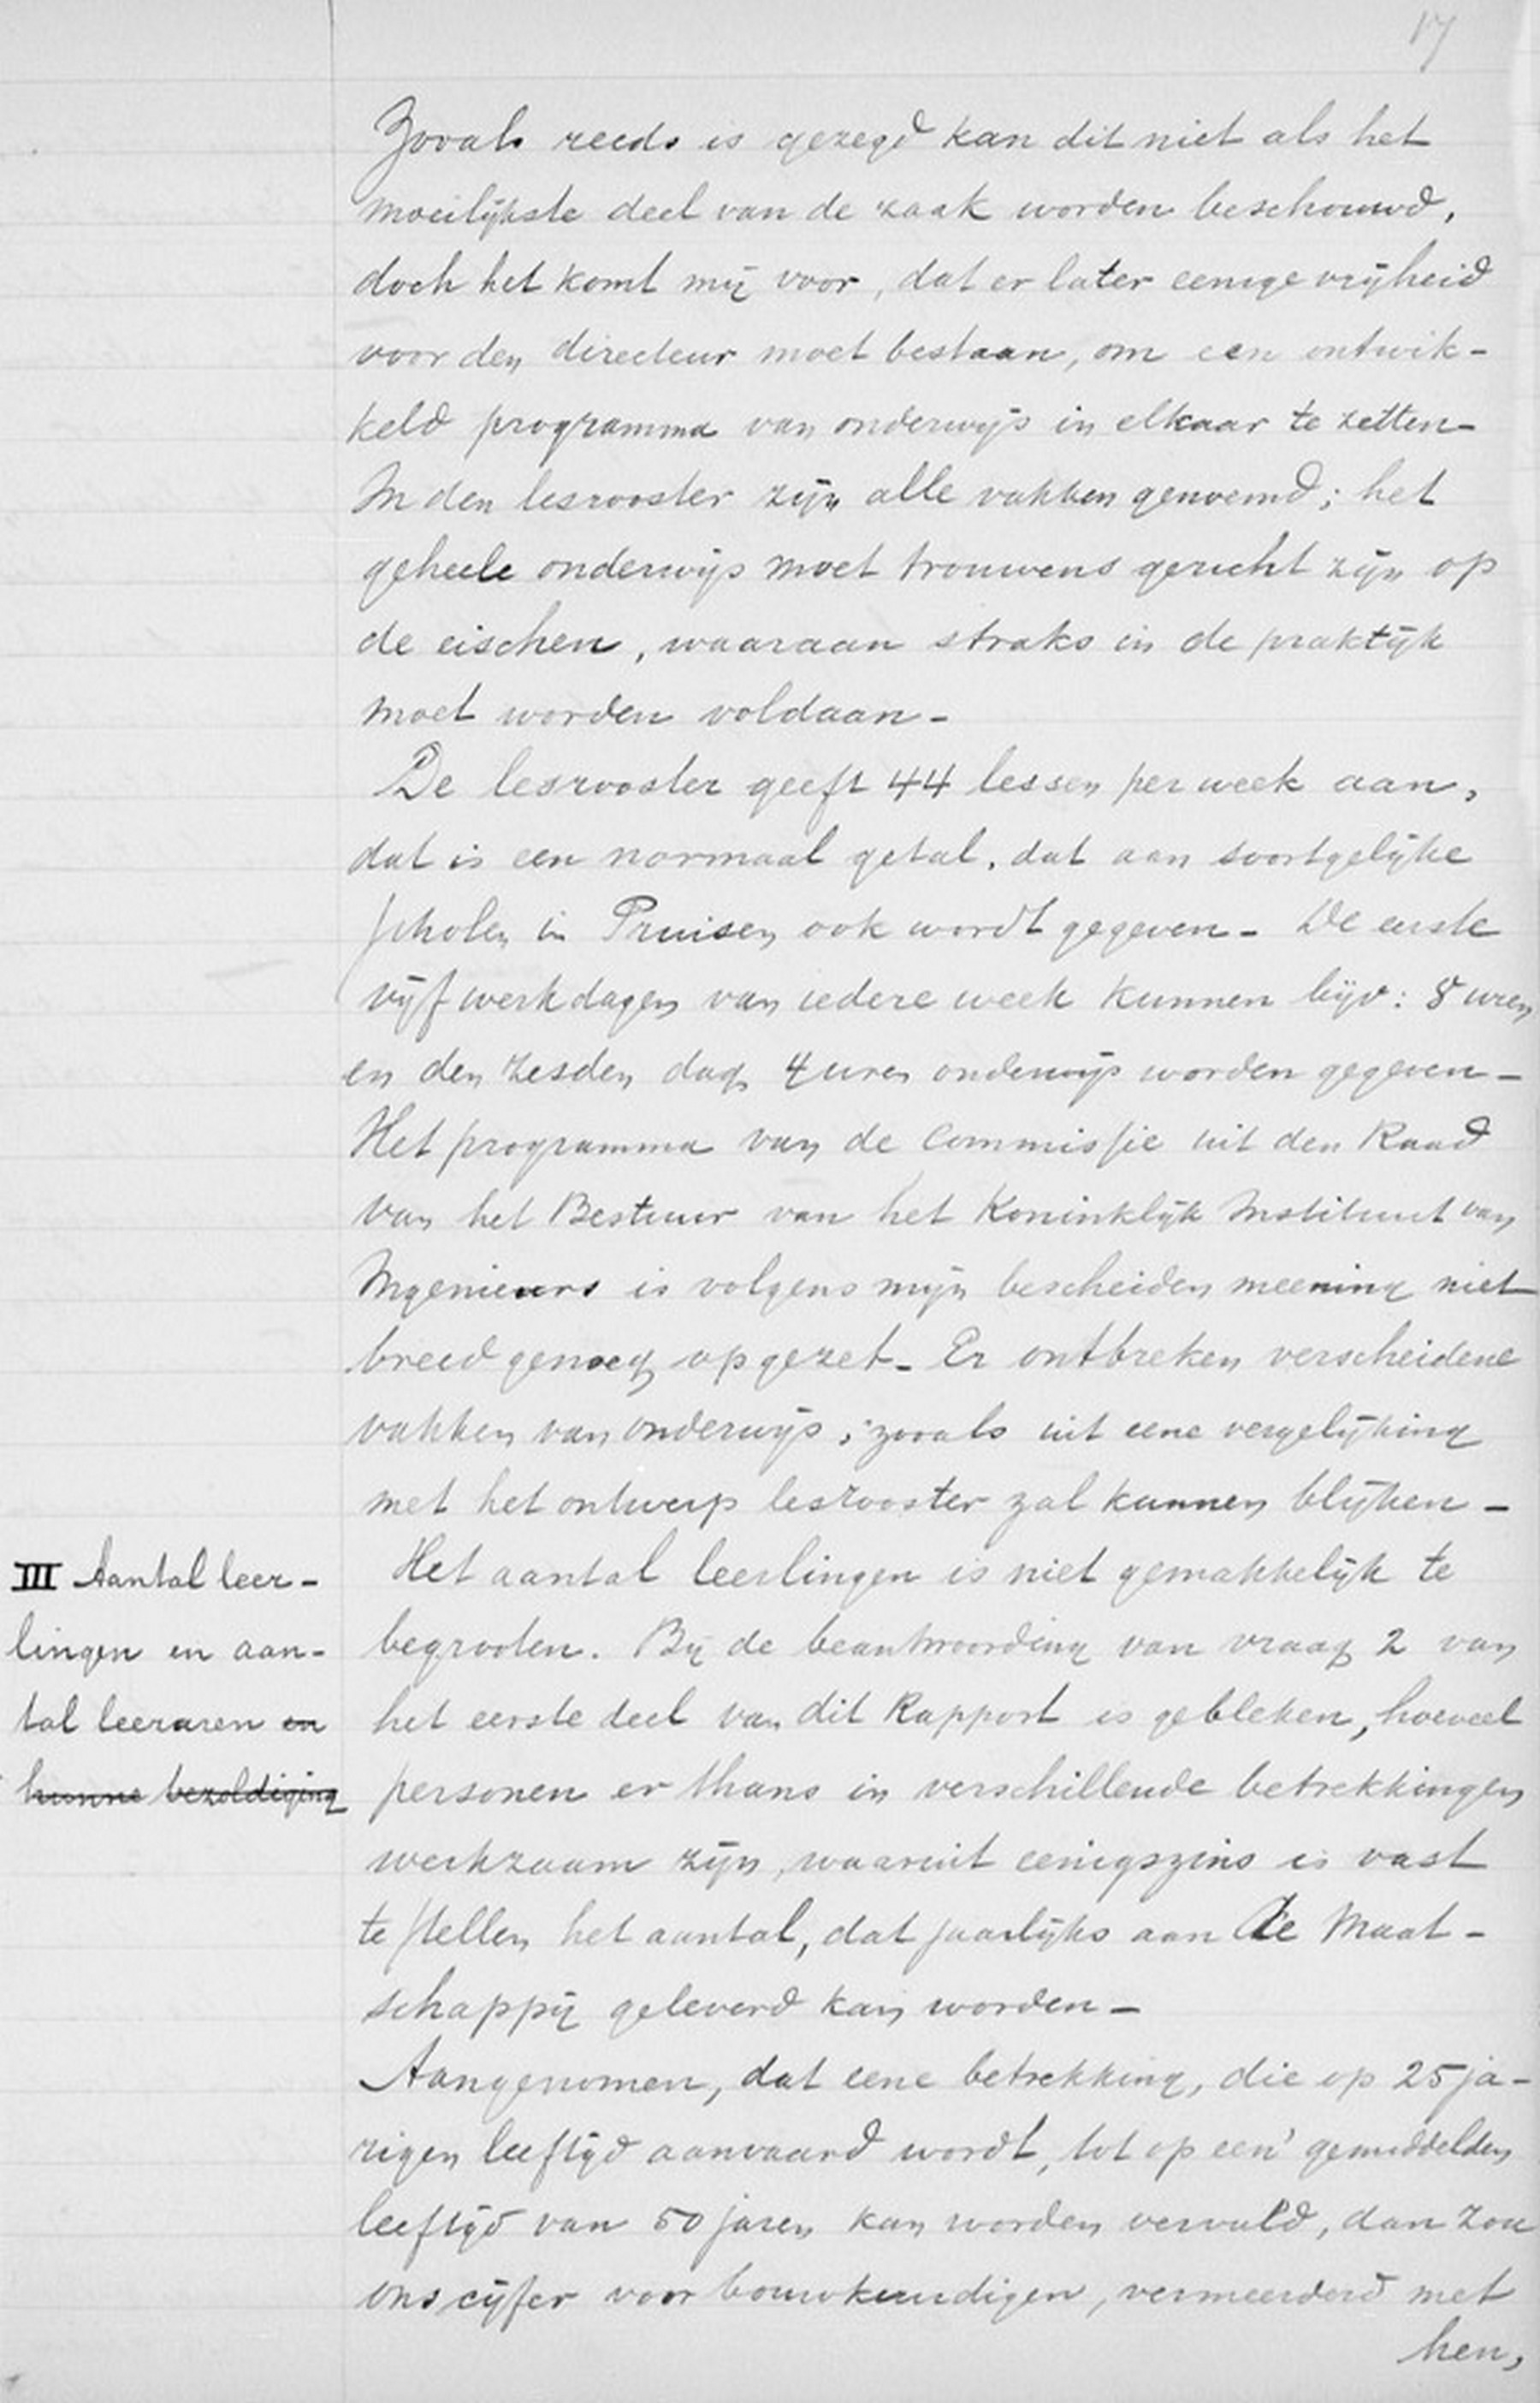 17
Zooals reeds is gezegd kan dit niet als het
moeilijkste deel van de zaak worden beschouwd,
doch het komt mij voor, dat er later eenige vrijheid
voor den directeur moet bestaan, om een ontwik-
keld programma van onderwijs in elkaar te zetten-
In den lesrooster zijn alle vakken genoemd; het
geheele onderwijs moet trouwens gericht zijn op
de eischen, waaraan straks in de praktijk
moet worden voldaan-
De lesrooster geeft 44 lessen per week aan,
dat is een normaal getal, dat aan soortgelijke
scholen in Pruisen ook wordt gegeven- De eerste
vijf werkdagen van iedere week kunnen bijv: 8 uren
en den zesden dag 4 uren onderwijs worden gegeven-
Het programma van de Commissie uit den Raad
van het Bestuur van het Koninklijk Instituut van
Ingenieurs is volgens mijn bescheiden meening niet
breed genoeg opgezet- Er ontbreken verscheidene
vakken van onderwijs, zooals uit eene vergelijking
met het ontwerp lesrooster zal kunnen blijken-
III Aantal leer-
lingen en aan-
tal leeraren en
hunne bezoldiging
Het aantal leerlingen is niet gemakkelijk te
begrooten. Bij de beantwoording van vraag 2 van
het eerste deel van dit Rapport is gebleken, hoeveel
personen er thans in verschillende betrekkingen
werkzaam zijn, waaruit eenigszins is vast
te stellen het aantal, dat jaarlijks aan de Maat-
schappij geleverd kan worden-
Aangenomen, dat eene betrekking, die op 25 ja-
rigen leeftijd aanvaard wordt, tot op een' gemiddelden
leeftijd van 50 jaren kan worden vervuld, dan zou
ons cijfer voor bouwkundigen, vermeerderd met
hen,